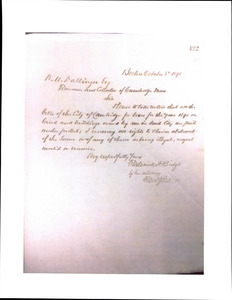 Boston October 31st 1891
W. H. Dallinger Esq
Treasurer and Collector of Cambridge Mass
Sir
Please to take notice that all the
bills of the City of Cambridge for taxes for the year 1891 on
land and buildings owned by me in said City are paid
under protest, I reserving all rights to claim abatement
of the same or of any of them as being illegal, unequal
or excessive.
Very respectfully Yours
by his attorney